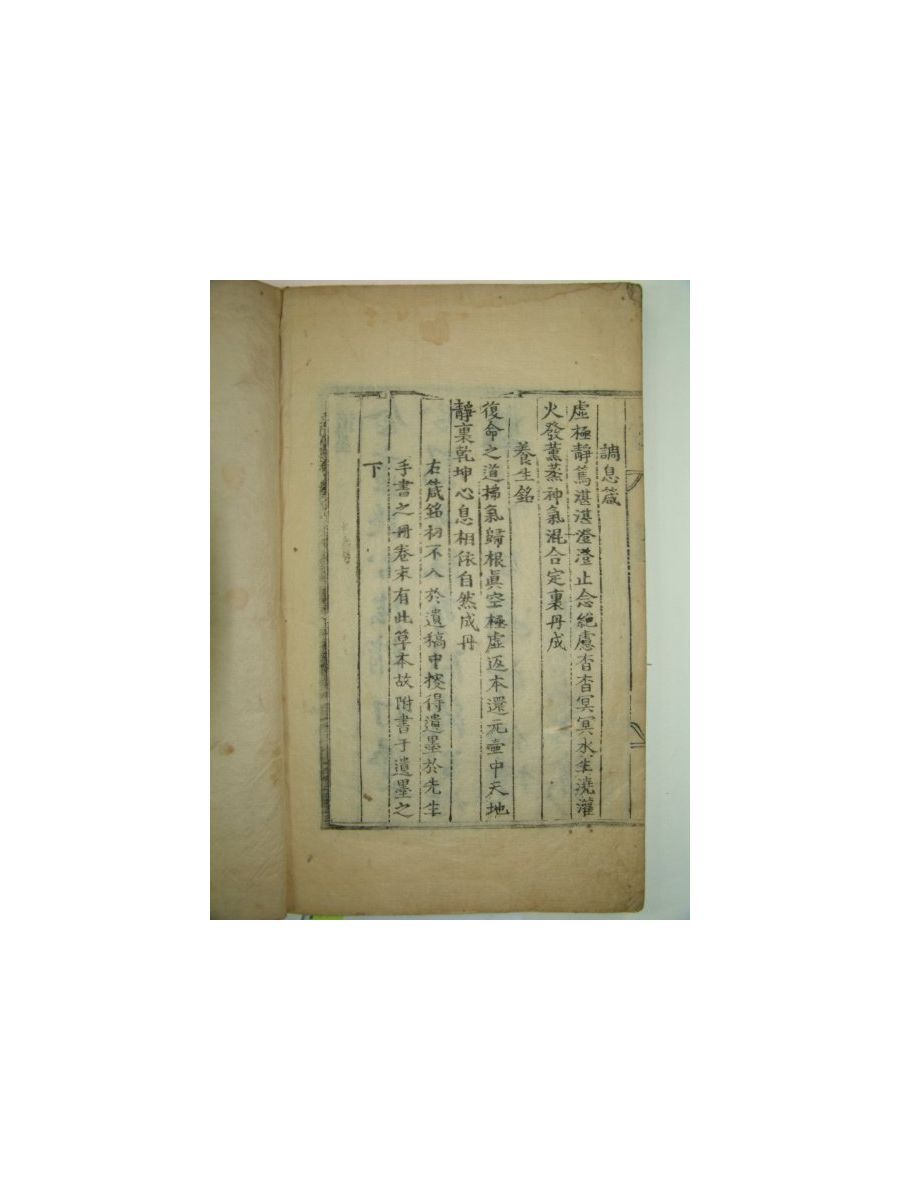 調息箴
虛極靜篤湛湛澄澄止念絶慮杳杳冥冥水生澆灌
火發薰蒸神氣混合定裏丹成
養生銘
復命之道揚氣歸根眞空極虛返本還元壷中天地
靜裏乾坤心息相依自然成丹
右箴銘初不入於遺稿中搜得遺墨於先生
手書之冊卷末有此草本故附書于遺墨之
下